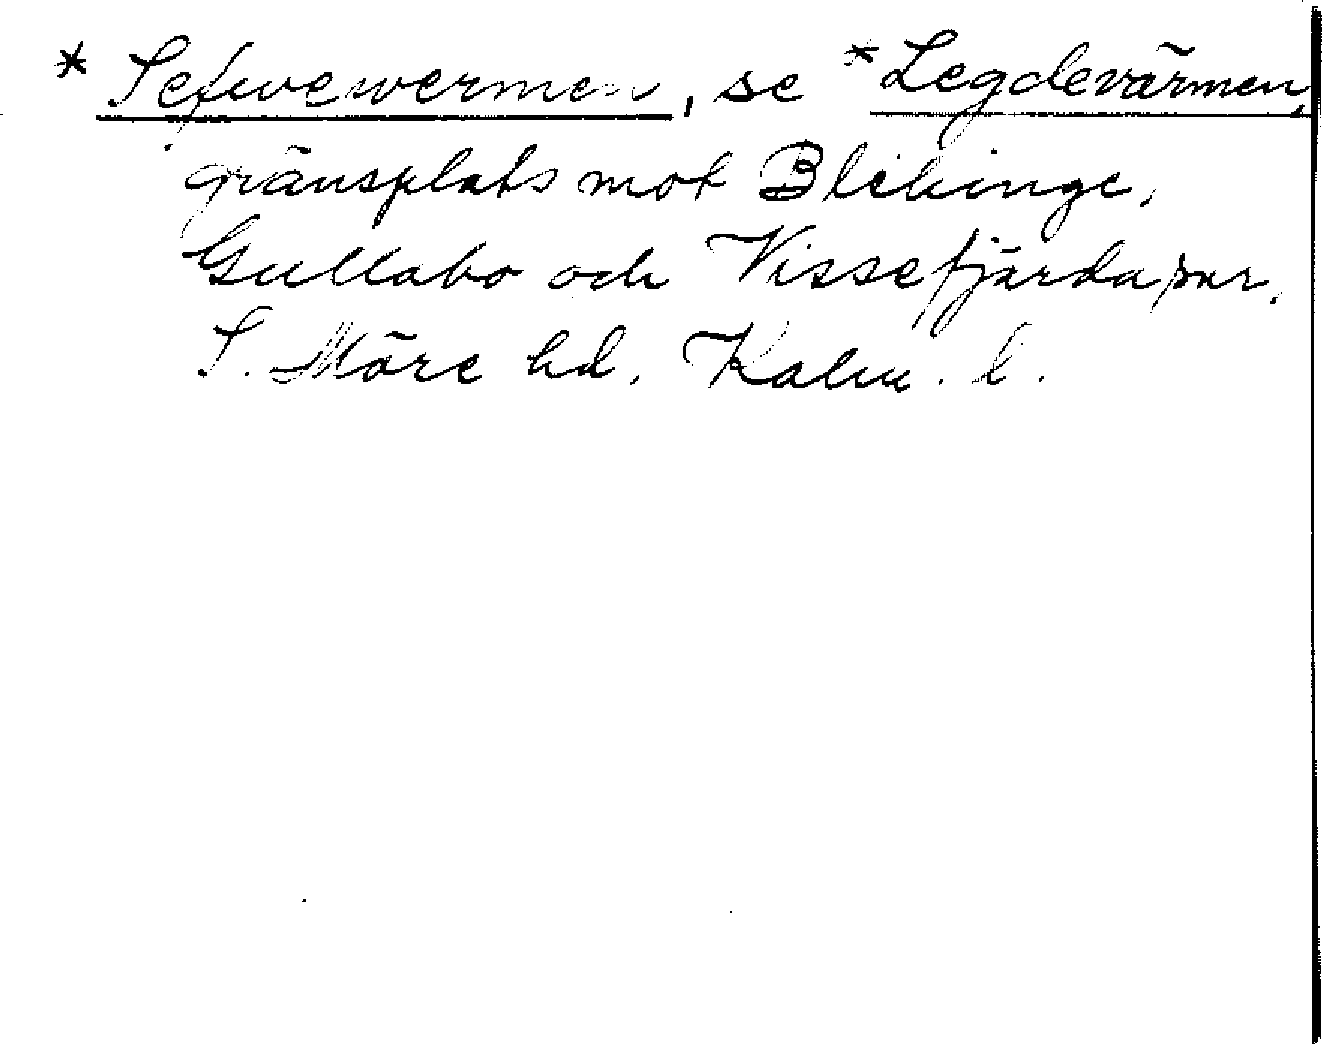 * Sefwewermen, se *Legdevärmen,
gränsplats mot Blekinge,
Gullabo och Vissefjärda snr,
S. Möre hd, Kalm. l.